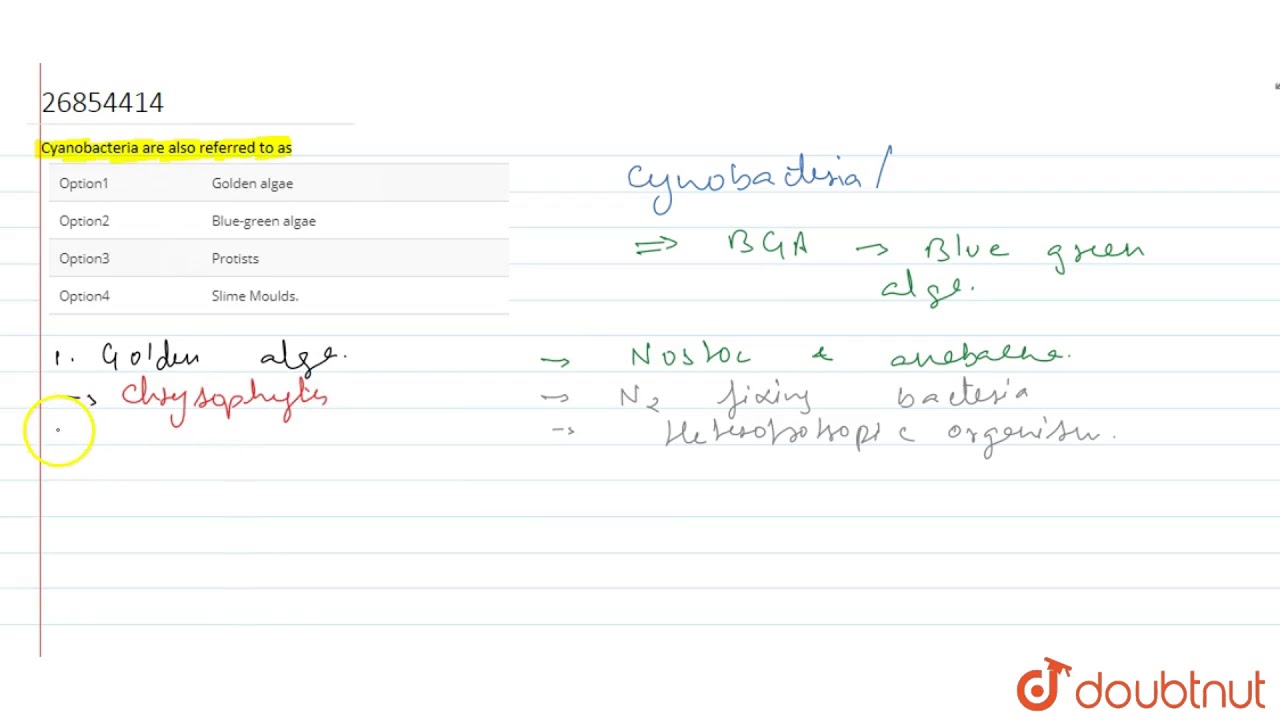 26854414
Cyanobacteria are also referred to as
Option1 Golden algae
Option2 Blue-green algae
Option3 Protists
Option4 Slime Moulds.
Cynobacteria /
⇒ BGA → Blue green
alge.
1. Golden alge.
→ Chrysophytes
→ Nostoc & anebaena.
→ N2 fixing bacteria
→ Heterotrophic organism.
doubtnut